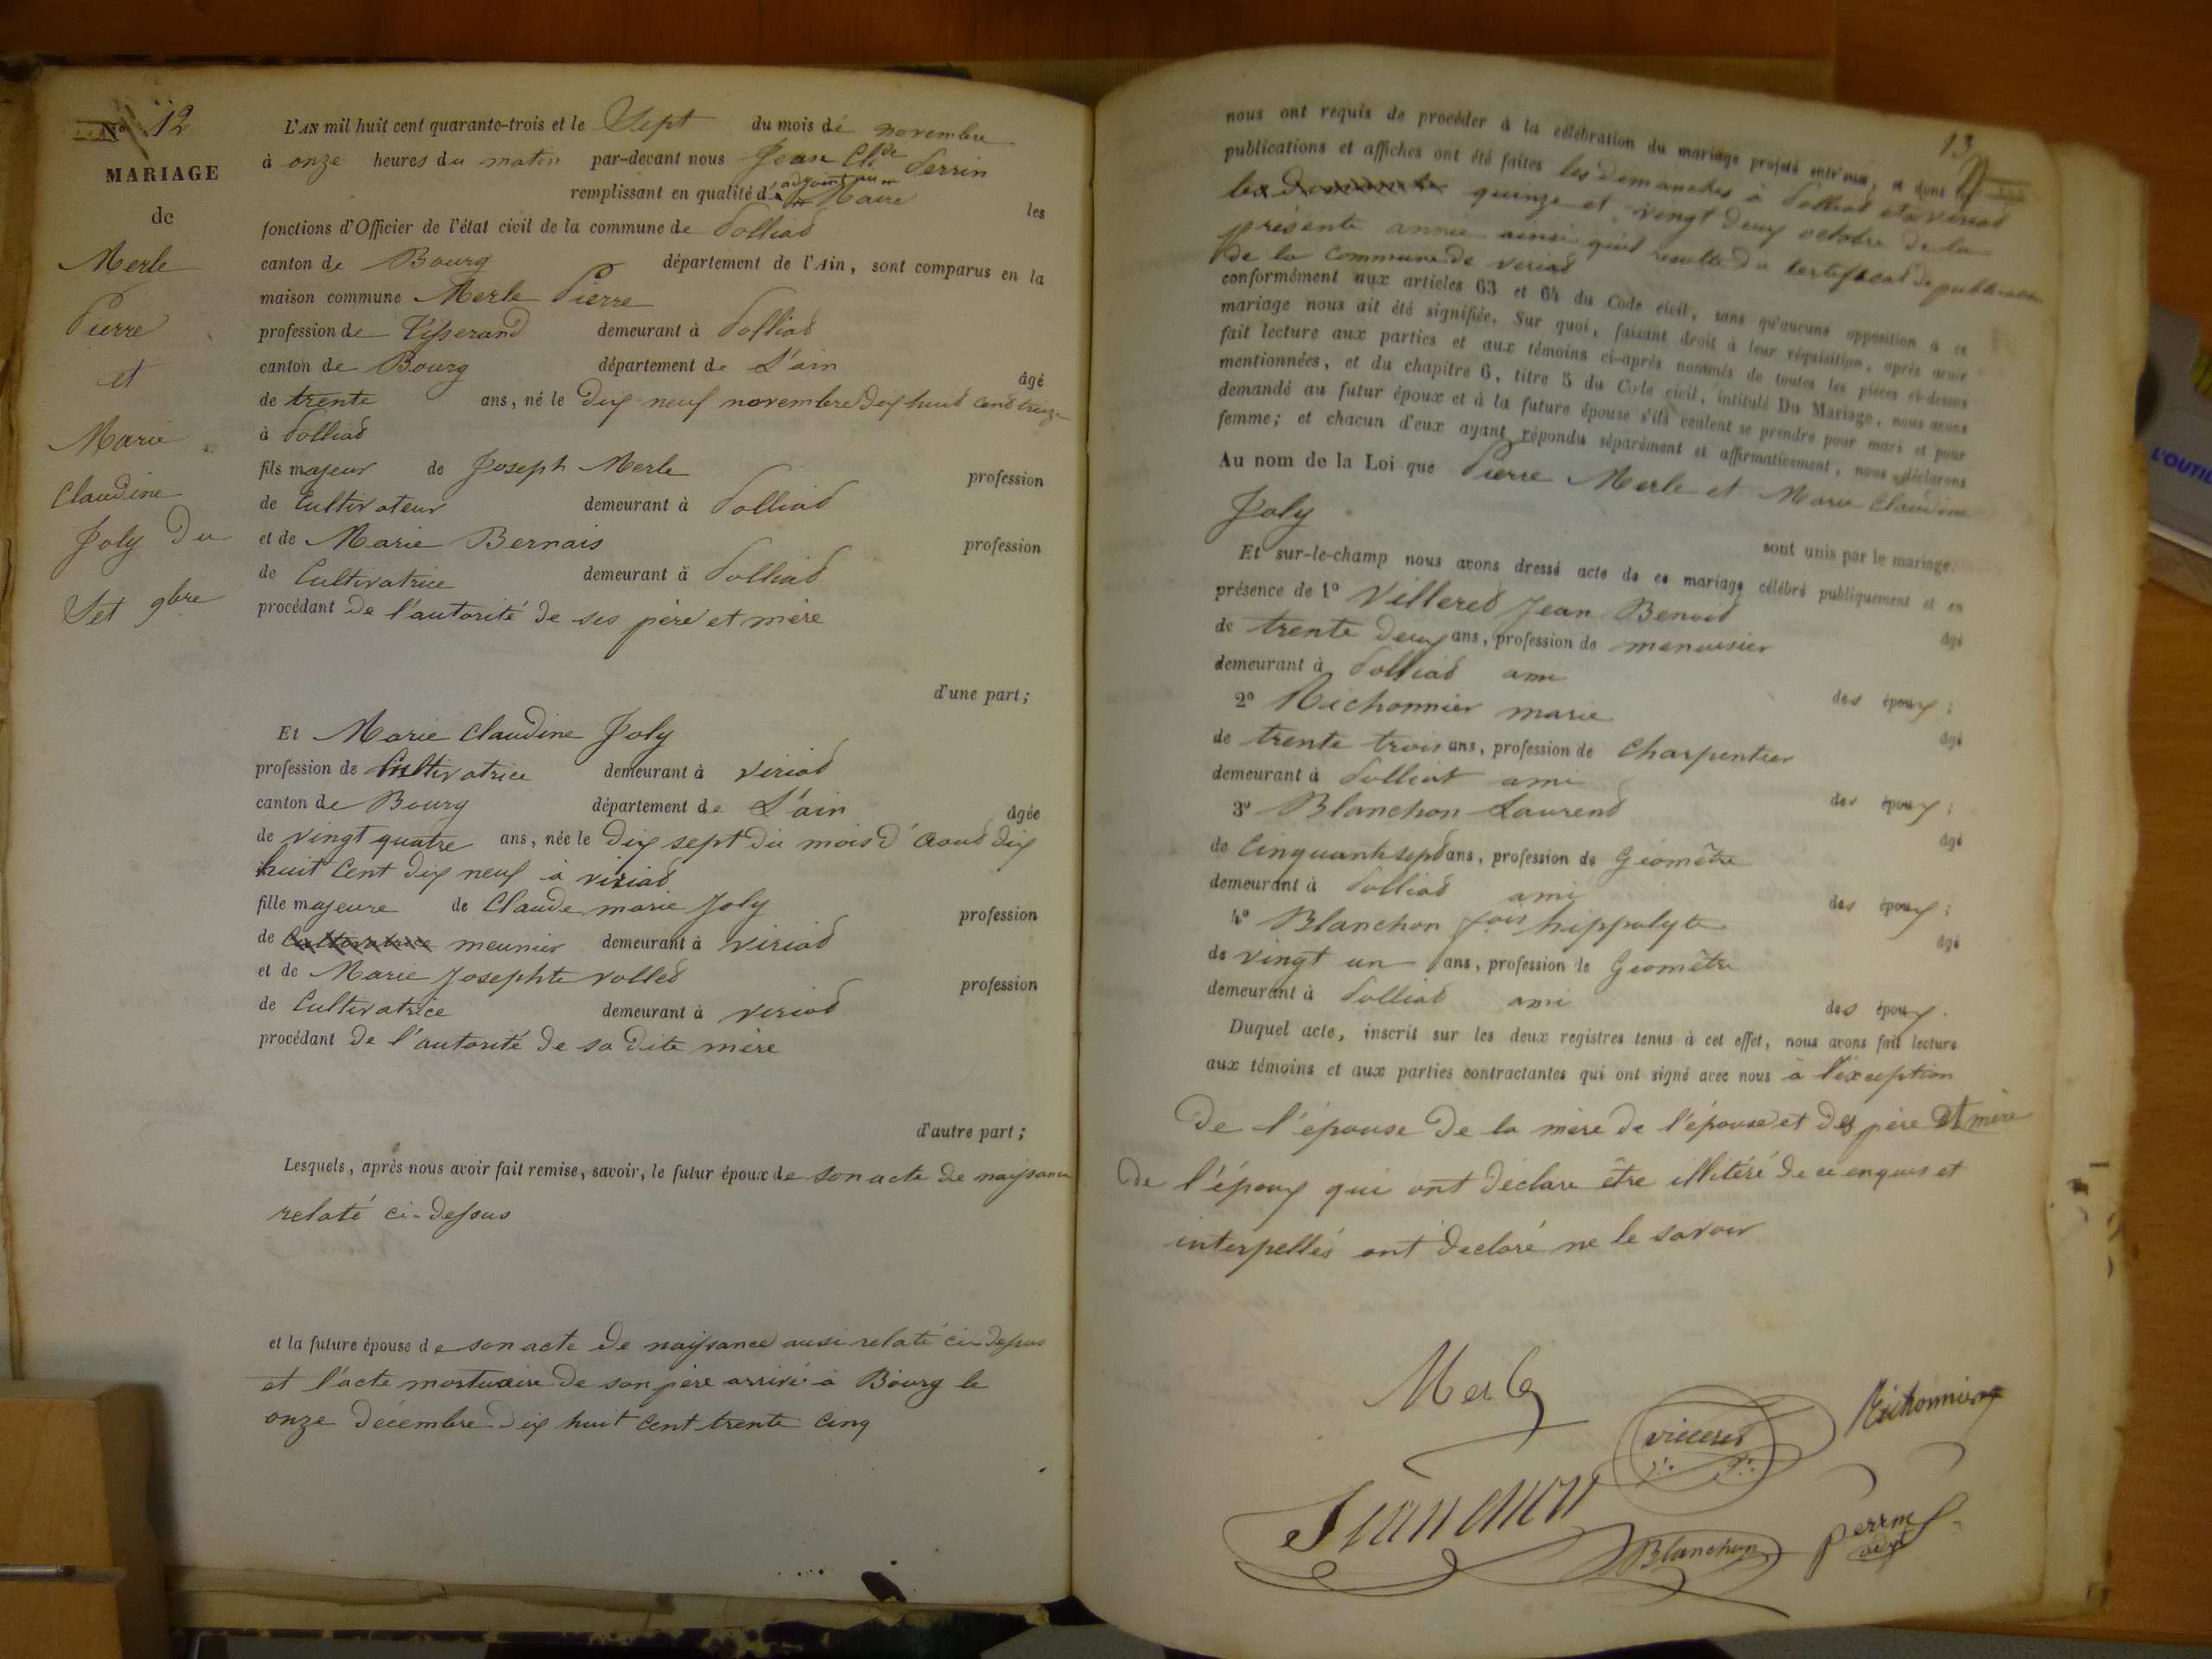 N° 12
MARIAGE
de
Merle
Pierre
et
Marie
Claudine
Joly Du
Set 9bre
L'AN mil huit cent quarante-trois et le Sept du mois de novembre
à onze heures du matin par-devant nous Jean Clde Perrin
remplissant en qualité d'adjoint au Maire les
fonctions d'Officier de l'état civil de la commune de Polliad
canton de Bourg département de l'Ain, sont comparus en la
maison commune Merle Pierre
profession de Tisserand demeurant à Polliad
canton de Bourg département de L'ain âgé
de trente ans, né le dix neuf novembre dix huit cend treize
à Polliad
fils majeur de Joseph Merle profession
de Cultivateur demeurant à Polliad
et de Marie Bernais profession
de Cultivatrice demeurant à Polliad
procédant de l'autorité de ses père et mère
d'une part;
Et Marie Claudine Joly
profession de Cultivatrice demeurant à viriad
canton de Bourg département de L'ain âgée
de vingt quatre ans, née le dix sept du mois d'aoud dix
huit Cent dix neuf à viriad
fille majeure de Claude marie Joly profession
de Cultivatrice meunier demeurant à viriad
et de Marie Josephte volled profession
de Cultivatrice demeurant à viriad
procédant de l'autorité de sa dite mère
d'autre part;
Lesquels, après nous avoir fait remise, savoir, le futur époux de son acte de naissance
relaté ci-dessus
et la future épouse de son acte de naissance ausi relaté ci-dessus
et l'acte mortuaire de son père arrivé à Bourg le
onze décembre dix huit Cent trente Cinq
13
nous ont requis de procéder à la célébration du mariage projeté entr'eux, et dont les
publications et affiches ont été faites les demanches à Polliad et à viriad
les quinze et vingt deux octobre de la
présente année ainsi qu'il resulte du certificat de publication
de la commune de viriad
conformément aux articles 63 et 64 du Code civil, sans qu'aucune opposition à ce
mariage nous ait été signifiée. Sur quoi, faisant droit à leur réquisition, après avoir
fait lecture aux parties et aux témoins ci-après nommés de toutes les pièces ci-dessus
mentionnées, et du chapitre 6, titre 5 du Code civil, intitulé Du Mariage, nous avons
demandé au futur époux et à la future épouse s'ils veulent se prendre pour mari et pour
femme; et chacun d'eux ayant répondu séparément et affirmativement, nous déclarons
Au nom de la Loi que Pierre Merle et Marie Claudine
Joly
sont unis par le mariage.
Et sur-le-champ nous avons dressé acte de ce mariage célébré publiquement et en
présence de 1° Villered Jean Benoid âgé
de trente deux ans, profession de menuisier
demeurant à Polliad ami des époux;
2° Richonnier marie âgé
de trente trois ans, profession de Charpentier
demeurant à Polliat ami des époux;
3° Blanchon Laurend âgé
de Cinquante sept ans, profession de Géomêtre
demeurant à Polliad ami des époux;
4° Blanchon fois hippolyte âgé
de vingt un ans, profession de Géomêtre
demeurant à Polliad ami des époux.
Duquel acte, inscrit sur les deux registres tenus à cet effet, nous avons fait lecture
aux témoins et aux parties contractantes qui ont signé avec nous à l'exception
de l'épouse de la mère de l'épouse et des père et mère
de l'époux qui ont déclaré être illitéré de ce enquis et
interpellés ont déclaré ne le savoir
Merle
villered
Richonnier
Blanchon
Perrin
adjt